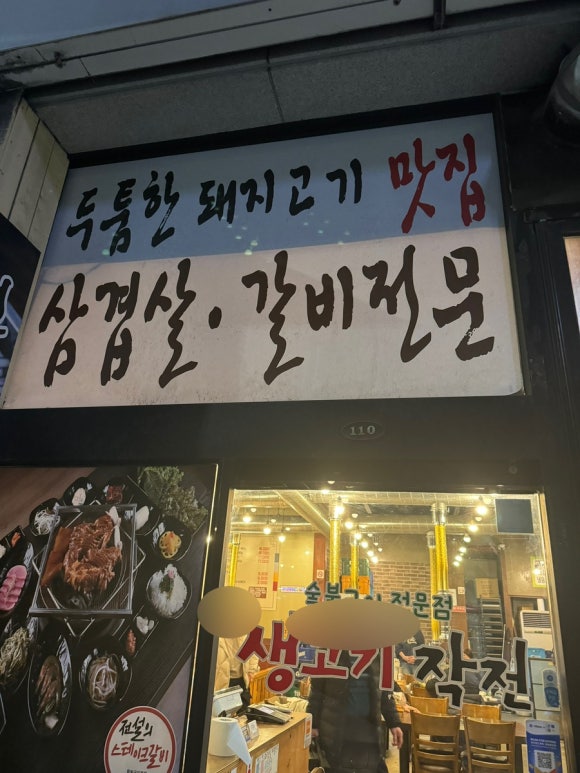 두툼한 돼지고기 맛집
삼겹살·갈비전문
110
전설의
스테이크갈비
숯불구이 전문점
생고기 작전